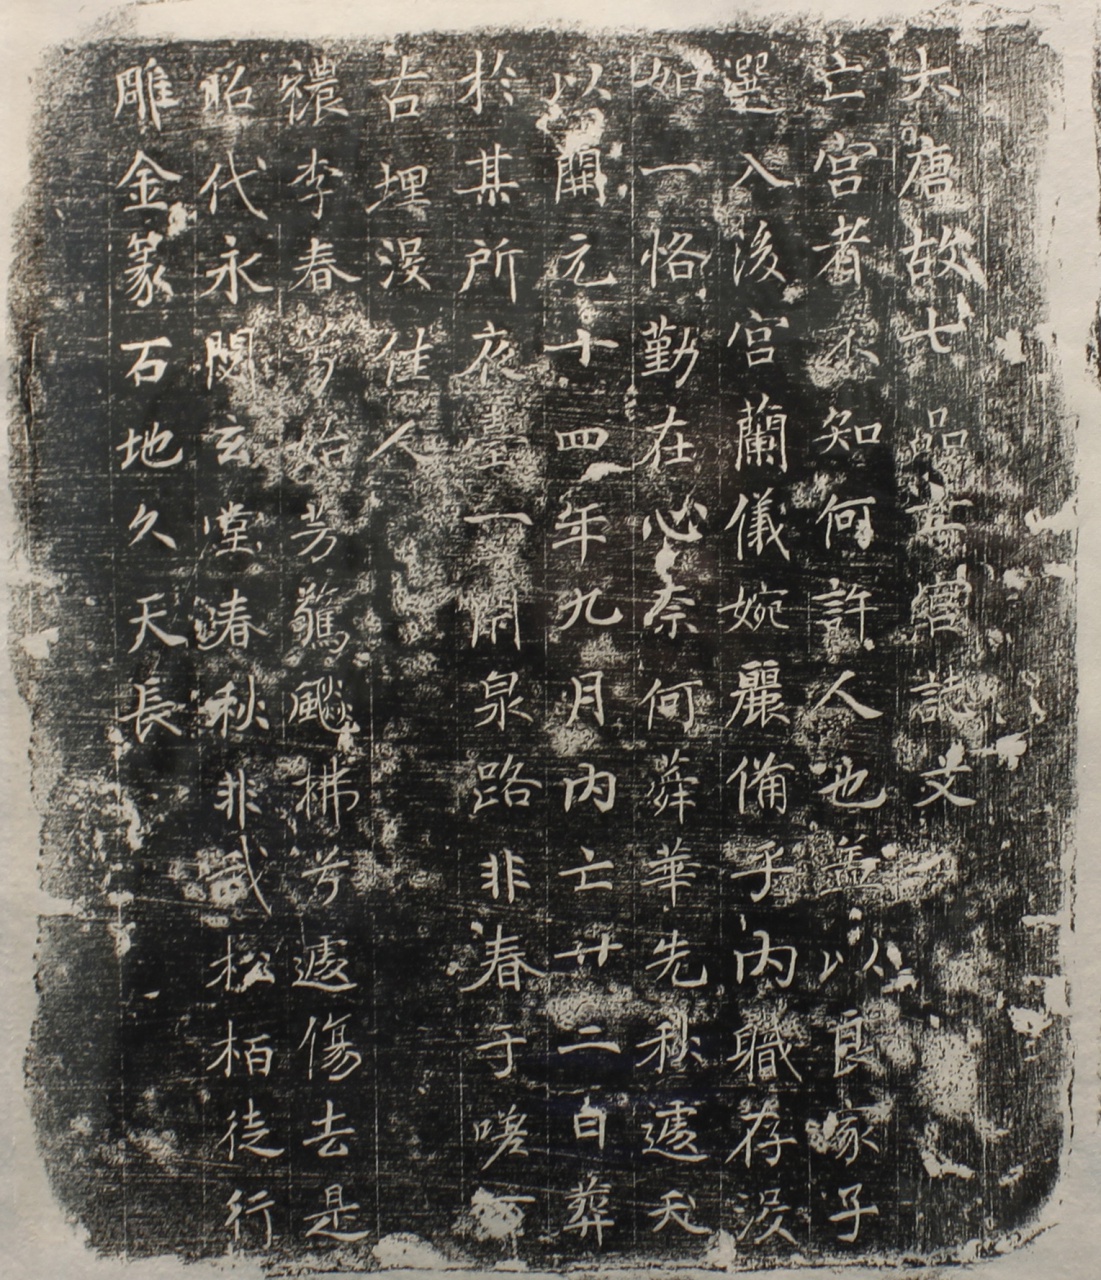 大唐故七品亡宮誌文
亡宮者不知何許人也蓋以良家子
選入後宮蘭儀婉麗備乎內職存沒
如一恪勤在心奈何蕣華先秋遽夭
以開元十四年九月內亡廿二日葬
於某所夜臺一閉泉路非春于嗟
古埋沒佳人
穠李春兮始芳驚飈拂兮遽傷去是
昭代永閟玄堂春秋非我松柏徒行
雕金篆石地久天長